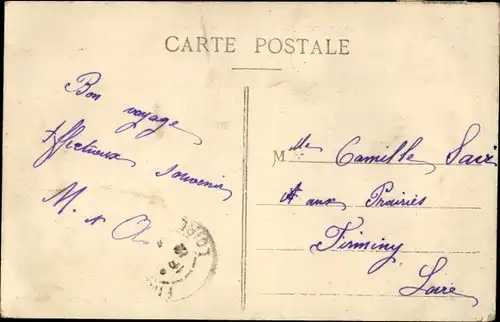 CARTE POSTALE
Bon voyage
Affectueux souvenir
M. A.
Mlle Camille
aux Prairies
Firminy
Loire
LOIRE